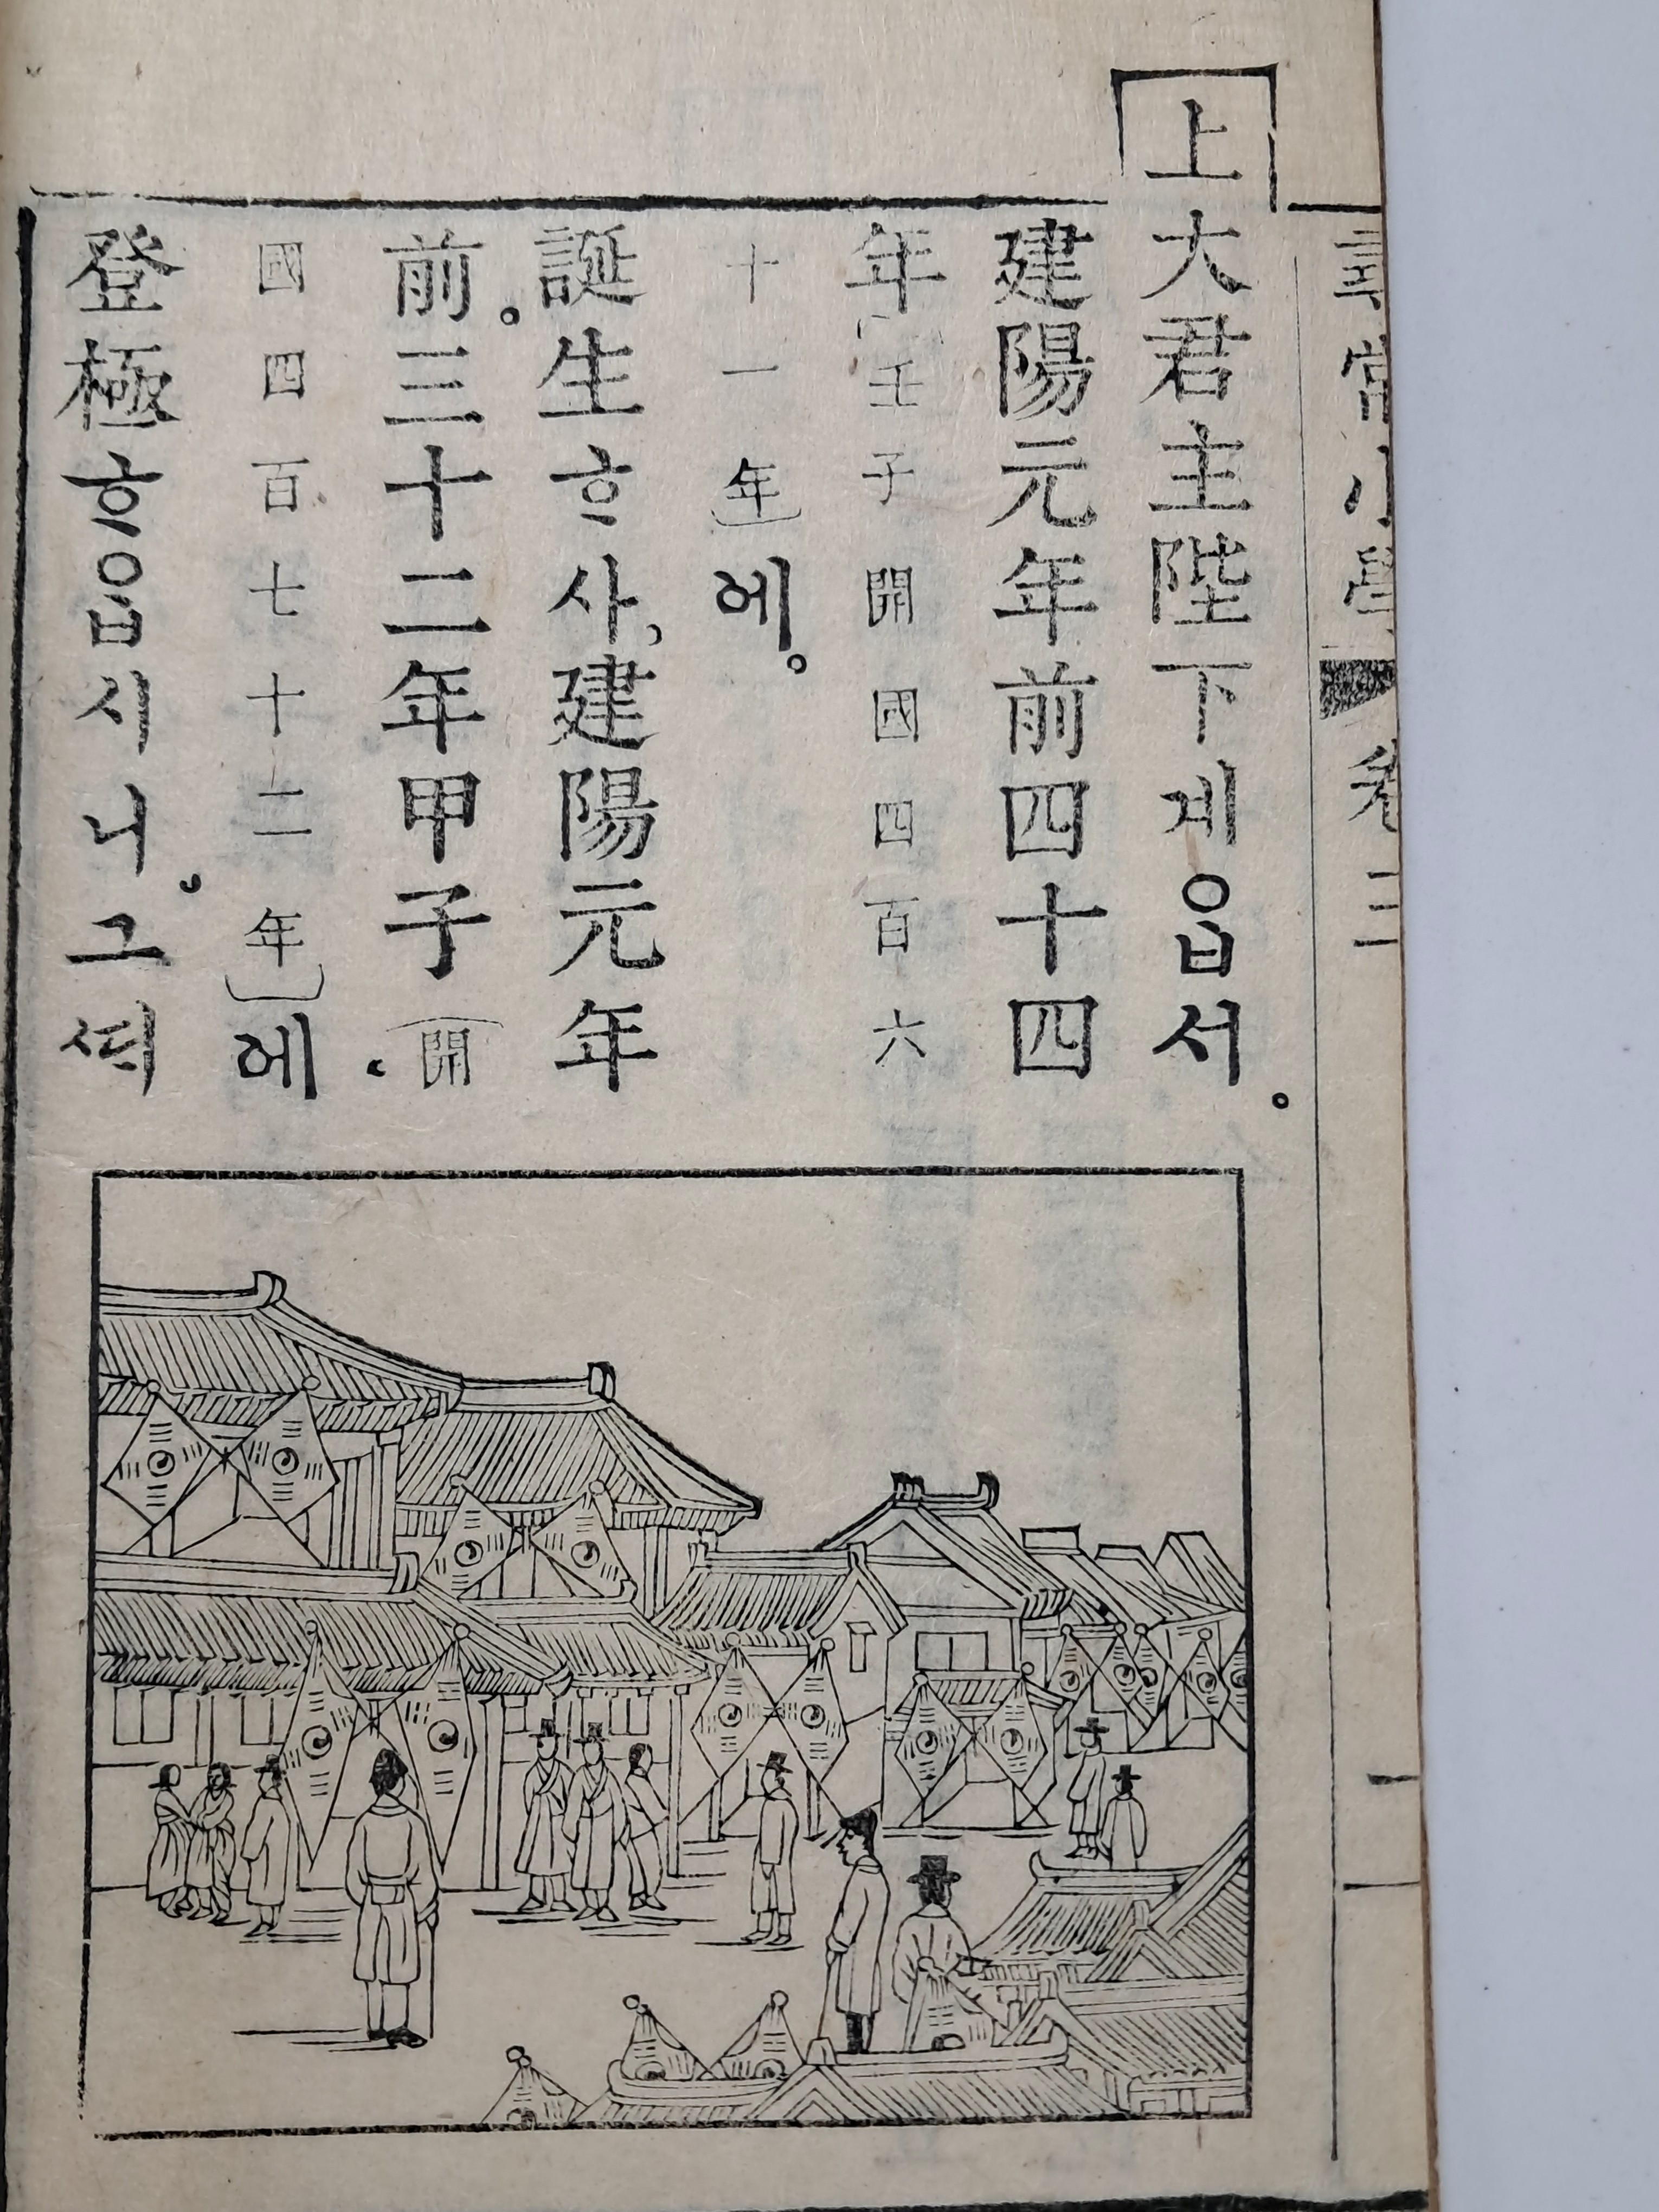 尋常小學 卷三
上大君主陛下계ᄋᆞᆸ서。
建陽元年前四十四
年(壬子開國四百六
十一年)에。
誕生ᄒᆞ사,建陽元年
前。三十二年甲子(開
國四百七十二年)에
登極ᄒᆞᄋᆞᆸ시니。그
一